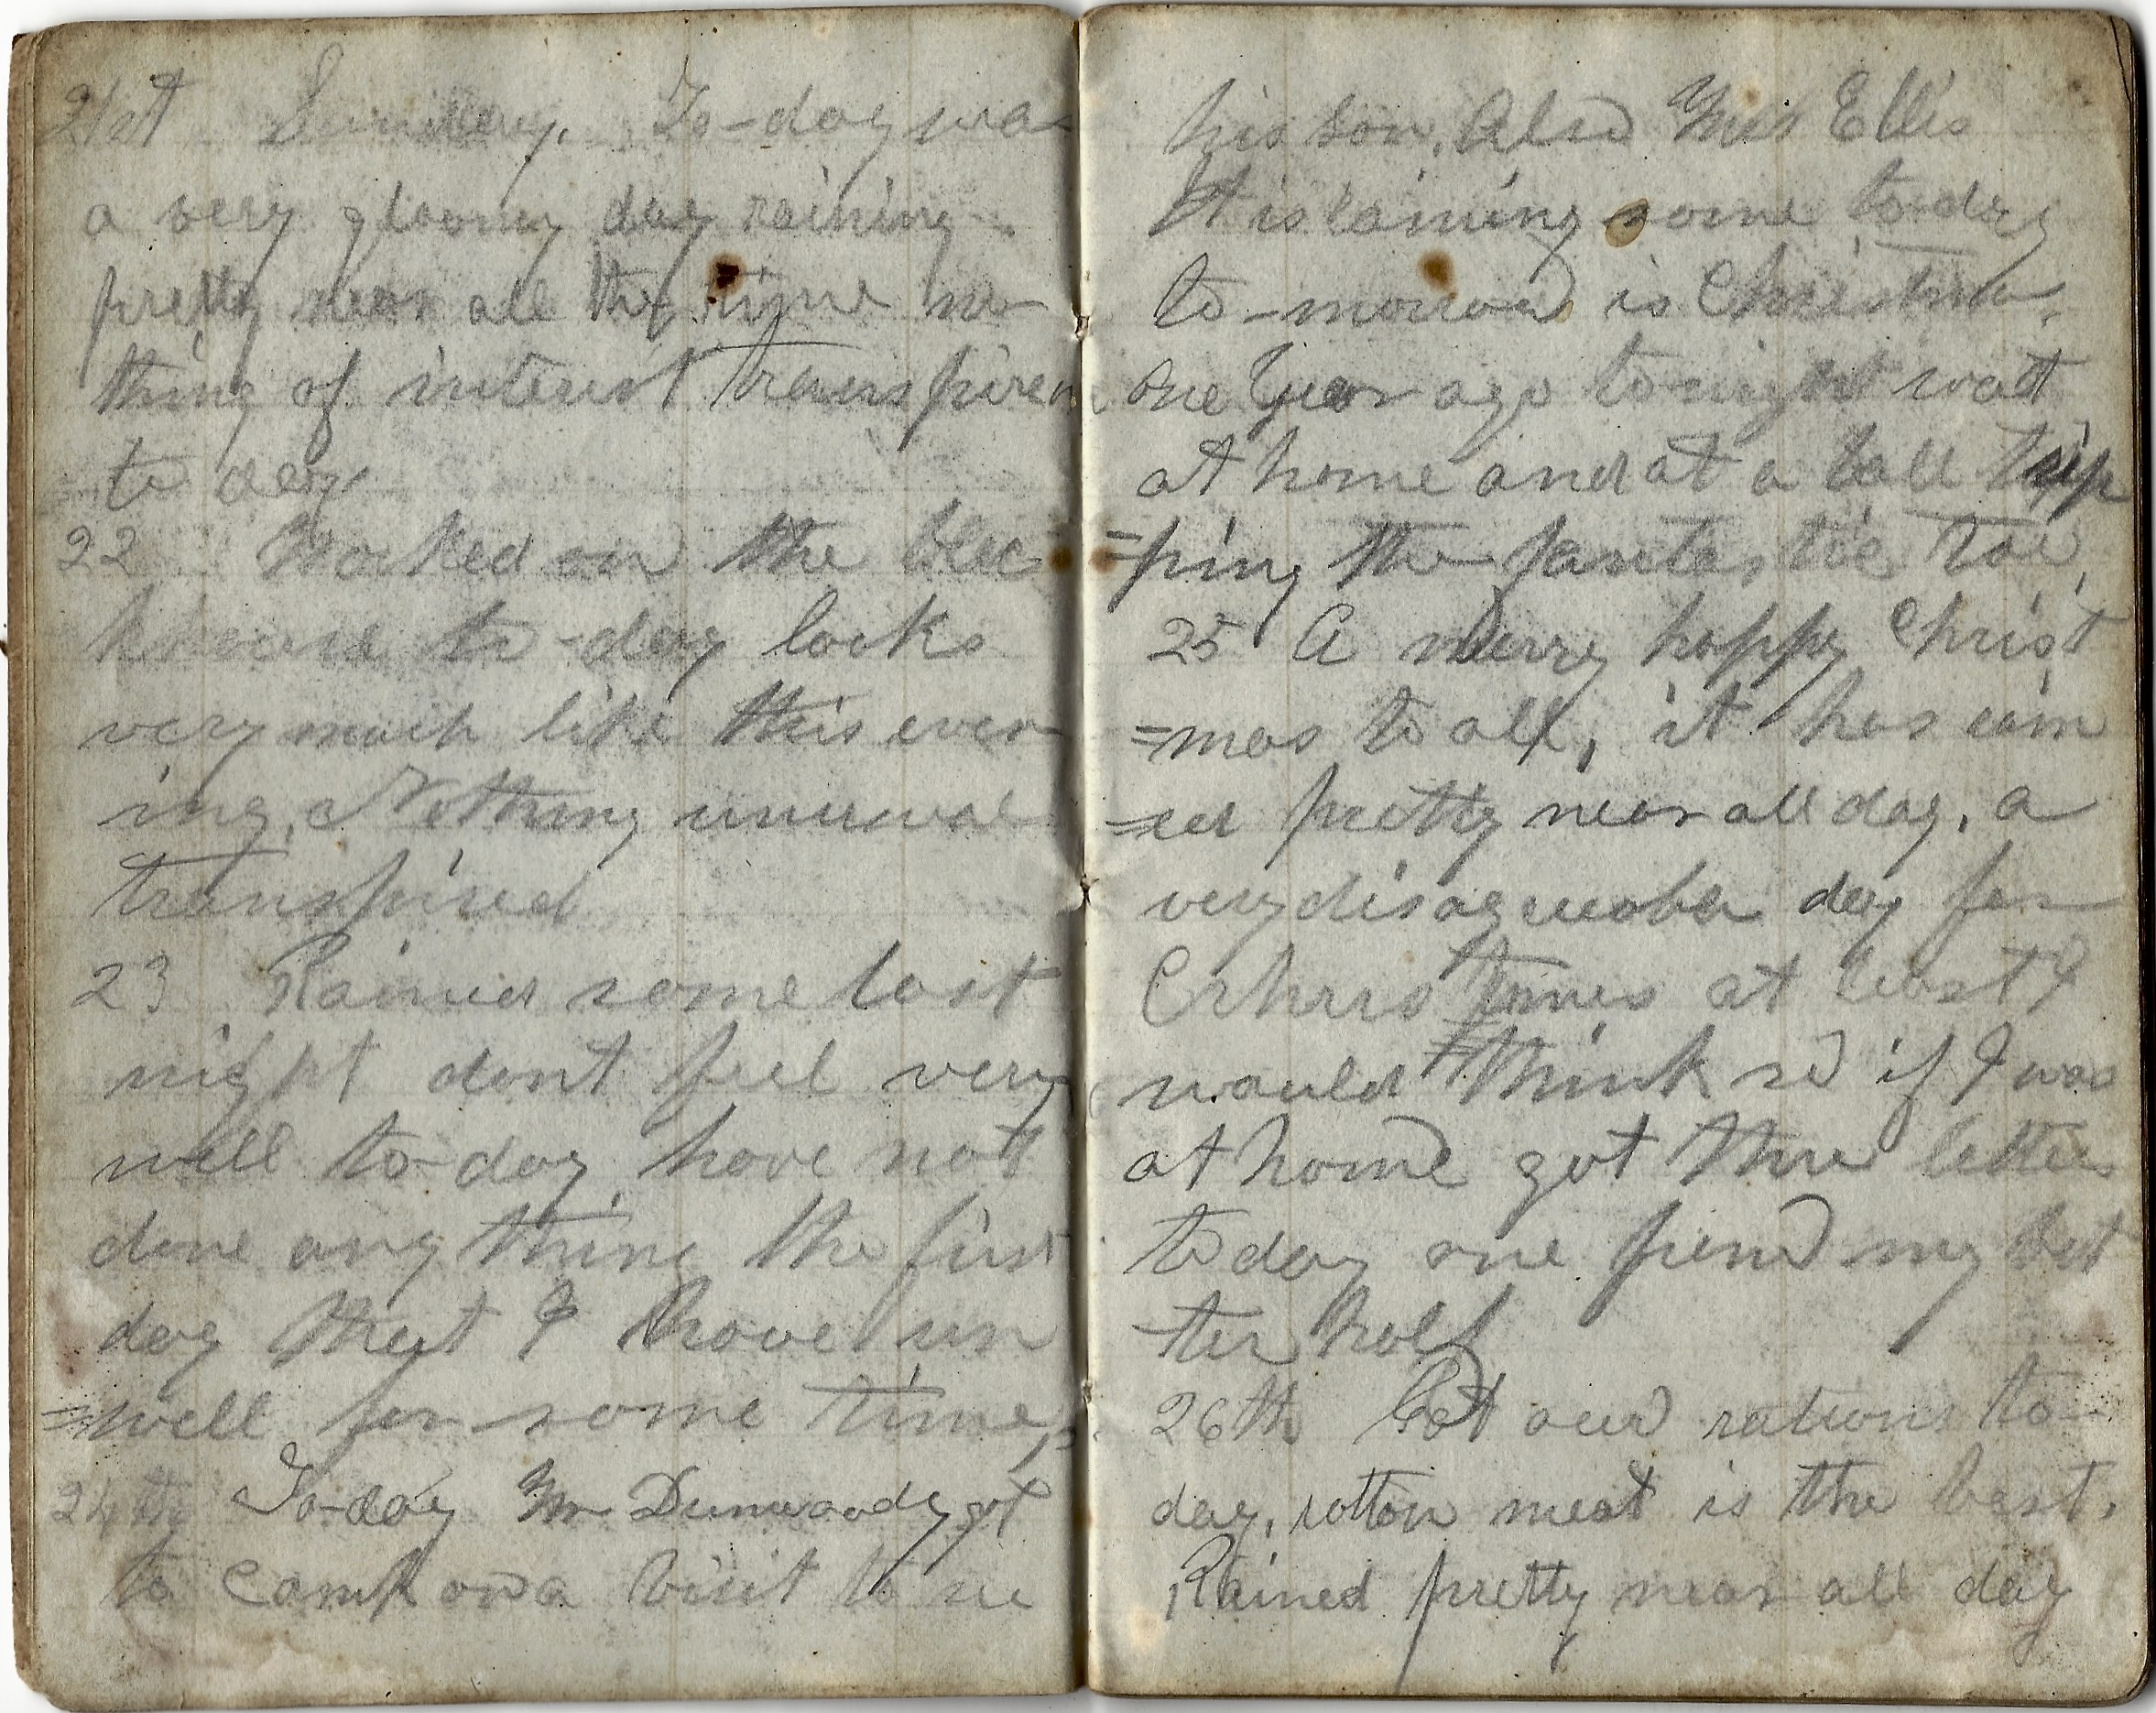 21st Sunday. To-day was
a very gloomy day raining
pretty near all the time no-
thing of interest transpired
to day
22 Worked on the bloc
khouse to-day looks
very much like this even
ing. Nothing unusual
transpired
23 Rained some last
night dont feel very
well to-day, have not
done any thing the first
day that I have un
=well for some time,
24th To-day Mr Dunwoody got
to camp on a visit to see
his son, Also Mr Ellis
It is raining some to-day
to-morrow is Christmas,
one year ago to-night
at home and at a ball trip
=ping the fantastic toe,
25 A merry happy Christ
=mas to all, it has rain
=ed pretty near all day, a
very disagreeable day for
Christmas at least I
would think so if I was
at home got three letters
to day one from my bet
-ter half
26th Got our rations to-
day, rotton meat is the best.
Rained pretty near all day